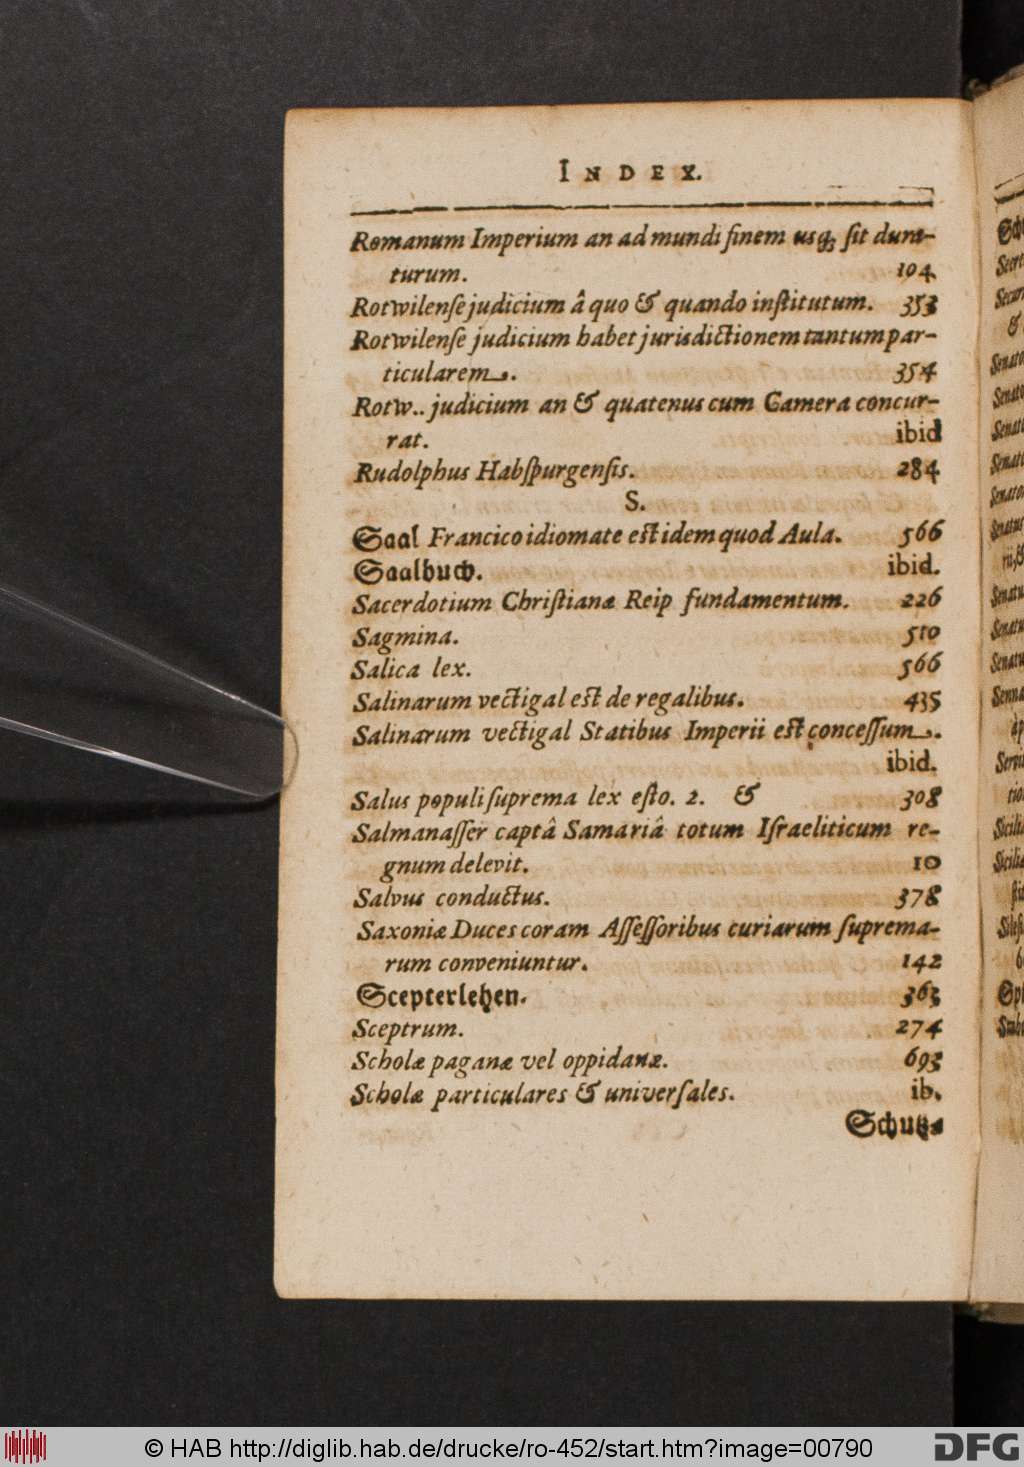 INDEX.
Romanum Imperium an ad mundi finem usq; sit dura-
turum. 104.
Rotwilense judicium â quo & quando institutum. 353
Rotwilense judicium habet jurisdictionem tantum par-
ticularem. 354
Rotw.. judicium an & quatenus cum Camera concur-
rat. ibid
Rudolphus Habspurgensis. 284
S.
Saal Francico idiomate est idem quod Aula. 566
Saalbuch. ibid.
Sacerdotium Christianæ Reip fundamentum. 226
Sagmina. 510
Salica lex. 566
Salinarum vectigal est de regalibus. 435
Salinarum vectigal Statibus Imperii est concessum.
ibid.
Salus populi suprema lex esto. 2. & 308
Salmanasser captâ Samariâ totum Israeliticum re-
gnum delevit. 10
Salvus conductus. 378
Saxoniæ Duces coram Assessoribus curiarum suprema-
rum conveniuntur. 142
Scepterlehen. 363
Sceptrum. 274
Scholæ paganæ vel oppidanæ. 693
Scholæ particulares & universales. ib.
Schutz-
© HAB http://diglib.hab.de/drucke/ro-452/start.htm?image=00790
DFG